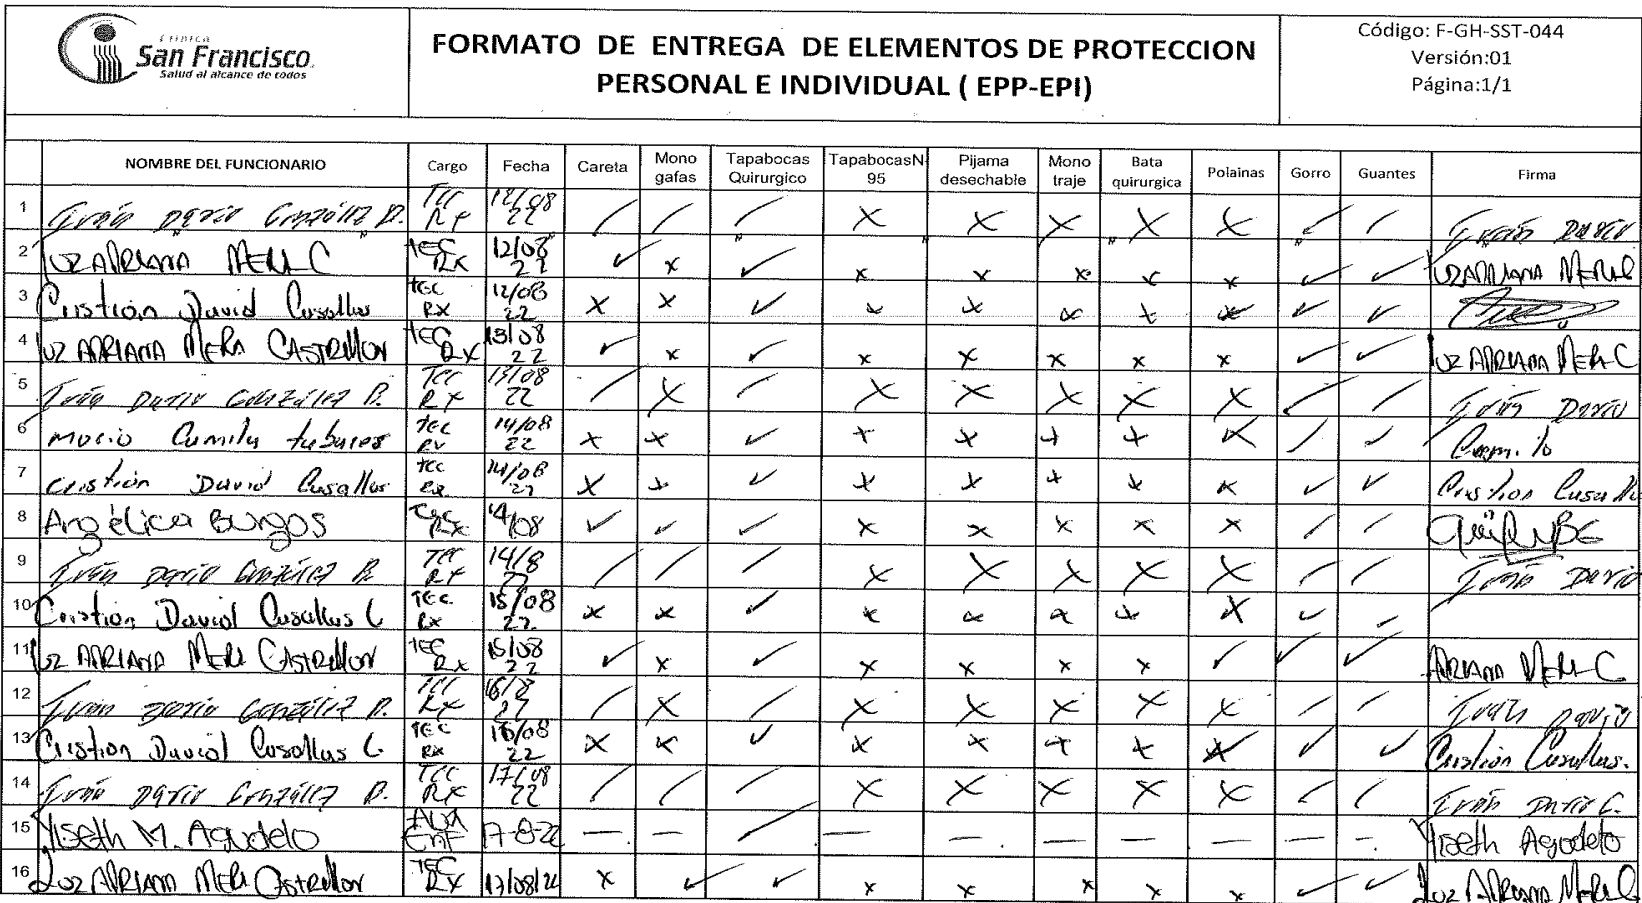 Clínica
San Francisco.
Salud al alcance de todos
FORMATO DE ENTREGA DE ELEMENTOS DE PROTECCION
PERSONAL E INDIVIDUAL ( EPP-EPI)
Código: F-GH-SST-044
Versión:01
Página:1/1
NOMBRE DEL FUNCIONARIO Cargo Fecha Careta Mono gafas Tapabocas Quirurgico TapabocasN-95 Pijama desechable Mono traje Bata quirurgica Polainas Gorro Guantes Firma
1 Iván Darío González B. Tec RX 12/08 22 / / / X X X X X / / Iván Darío
2 Luz ADRIANA MERA C TEC RX 12/08 22 ✓ x ✓ x x x x x ✓ ✓ Luz ADRIANA MERA C
3 Cristian David Casallas tec RX 12/08 22 X X ✓ x x x x x ✓ ✓
4 Luz ADRIANA MERA CASTRILLON TEC RX 13/08 22 ✓ x ✓ x x x x x ✓ ✓ Luz ADRIANA MERA C
5 Iván Darío González B. Tec RX 13/08 22 / X / X X X X X / / Iván Darío
6 Mario Camilo tabares tec RX 14/08 22 x x ✓ x x x x x ✓ ✓ Camilo
7 Cristian David Casallas tec RX 14/08 22 X x ✓ x x x x x ✓ ✓ Cristian Casallas
8 Angélica Burgos Tec RX 14/08 ✓ ✓ ✓ x x x x x / /
9 Iván Darío González B. Tec RX 14/8 22 / / / X X X X X / / Iván Darío
10 Cristian David Casallas C TEC RX 15/08 22 x x ✓ x x x x X ✓ –
11 Luz ADRIANA MERA CASTRILLON TEC RX 15/08 22 ✓ x ✓ x x x x ✓ ✓ ✓ ADRIANA MERA C
12 Iván Darío González B. Tec RX 16/8 22 / X / X X X X X / / Iván Darío
13 Cristian David Casallas C TEC RX 16/08 22 X x ✓ x x x x X ✓ ✓ Cristian Casallas.
14 Iván Darío González B. Tec RX 17/08 22 / / / X X X X X / / Iván Darío G.
15 Yiseth M. Agudelo AUX Enf 17-8-22 — — / — — — — — — — Yiseth Agudelo
16 Luz ADRIANA MERA Castrillon TEC RX 17/08/22 x ✓ ✓ x x x x x ✓ ✓ Luz ADRIANA MERA C